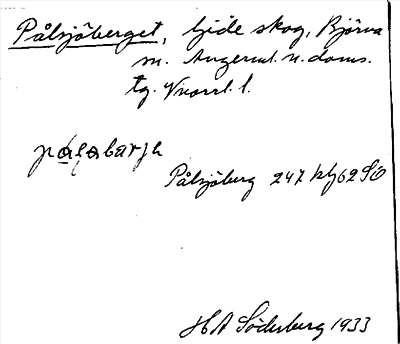 Pålsjöberget, Gide skog, Björna
sn. Ångerml. n. doms.
tg. Vnorrl. l.
Pålsjöberg 247 kbj 62 SO
HA Söderberg 1933